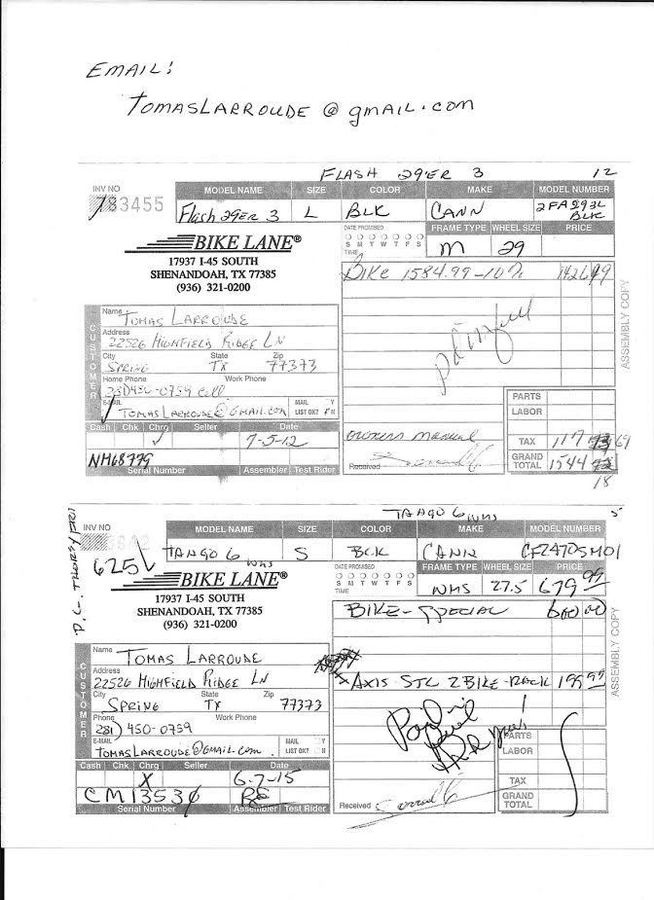 EMAIL:
TOMASLARROUDE @ gmail.com
FLASH 29ER 3 12
INV NO MODEL NAME SIZE COLOR MAKE MODEL NUMBER
83455 Flash 29er 3 L BLK CANN 2FA293L BLK
DATE PROMISED FRAME TYPE WHEEL SIZE PRICE
S M T W T F S M 29
TIME
BIKE LANE®
17937 I-45 SOUTH
SHENANDOAH, TX 77385
(936) 321-0200
BIKE 1584.99-10%
Name TOMAS LARROUDE
Address
22526 HIGHFIELD RIDGE LN
City State Zip
SPRING TX 77373
Home Phone Work Phone
450-0759 cell
E-MAIL MAIL Y
TOMASLARROUDE@GMAIL.COM LIST OK? N
CUSTOMER
pd in full
ASSEMBLY COPY
PARTS
LABOR
Cash Chk Chrg Seller Date
✓ 7-5-12
owners manual
TAX 117 69
GRAND TOTAL 1544 18
NM68779
Serial Number Assembler Test Rider
Received
TANGO 6 WHS 5
INV NO MODEL NAME SIZE COLOR MAKE MODEL NUMBER
TANGO 6 WHS S BLK CANN CFZ470SM01
625
DATE PROMISED FRAME TYPE WHEEL SIZE PRICE
S M T W T F S WHS 27.5 679 99
TIME
BIKE LANE®
17937 I-45 SOUTH
SHENANDOAH, TX 77385
(936) 321-0200
BIKE-SPECIAL 600 00
Name TOMAS LARROUDE
Address
22526 HIGHFIELD RIDGE LN
AXIS STL 2 BIKE-RACK 199 99
City State Zip
SPRING TX 77373
Phone Work Phone
(281) 450-0759
E-MAIL MAIL Y
TOMASLARROUDE@GMAIL.COM LIST OK? N
CUSTOMER
Paid in Full
ASSEMBLY COPY
PARTS
LABOR
Cash Chk Chrg Seller Date
X 6-7-15
TAX
GRAND TOTAL
RE
Serial Number Assembler Test Rider
Received